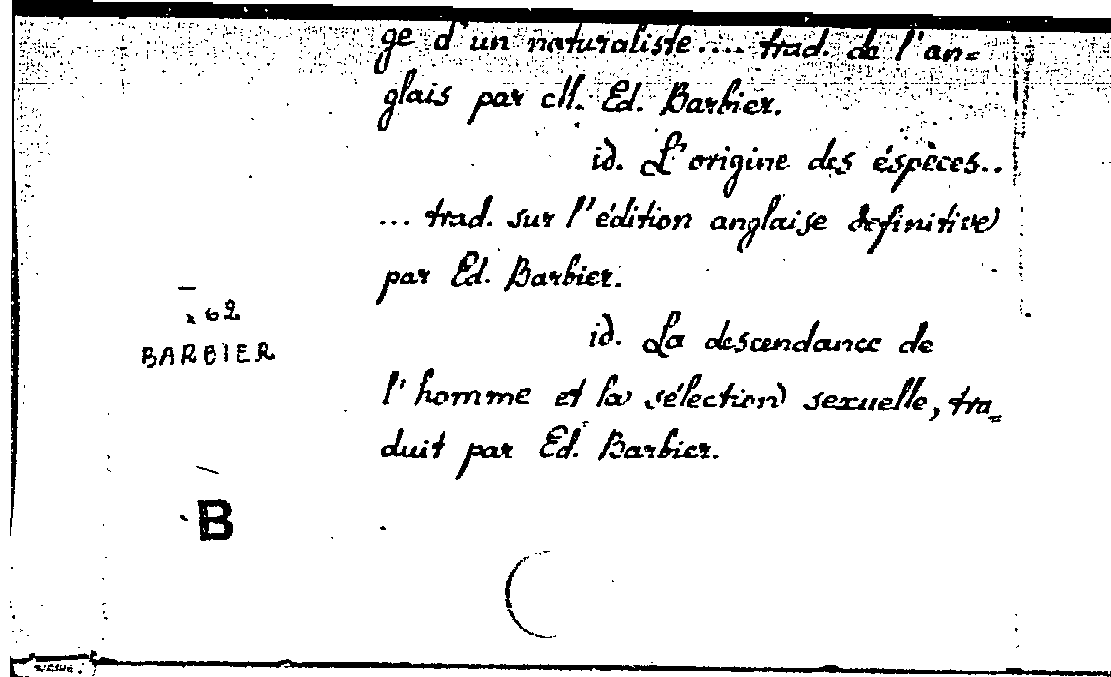 ge d'un naturaliste.... trad. de l'an=
glais par M. Ed. Barbier.
id. L'origine des éspèces..
... trad. sur l'édition anglaise definitive
par Ed. Barbier.
id. La descendance de
l'homme et la sélection sexuelle, tra=
duit par Ed. Barbier.
62
BARBIER
B